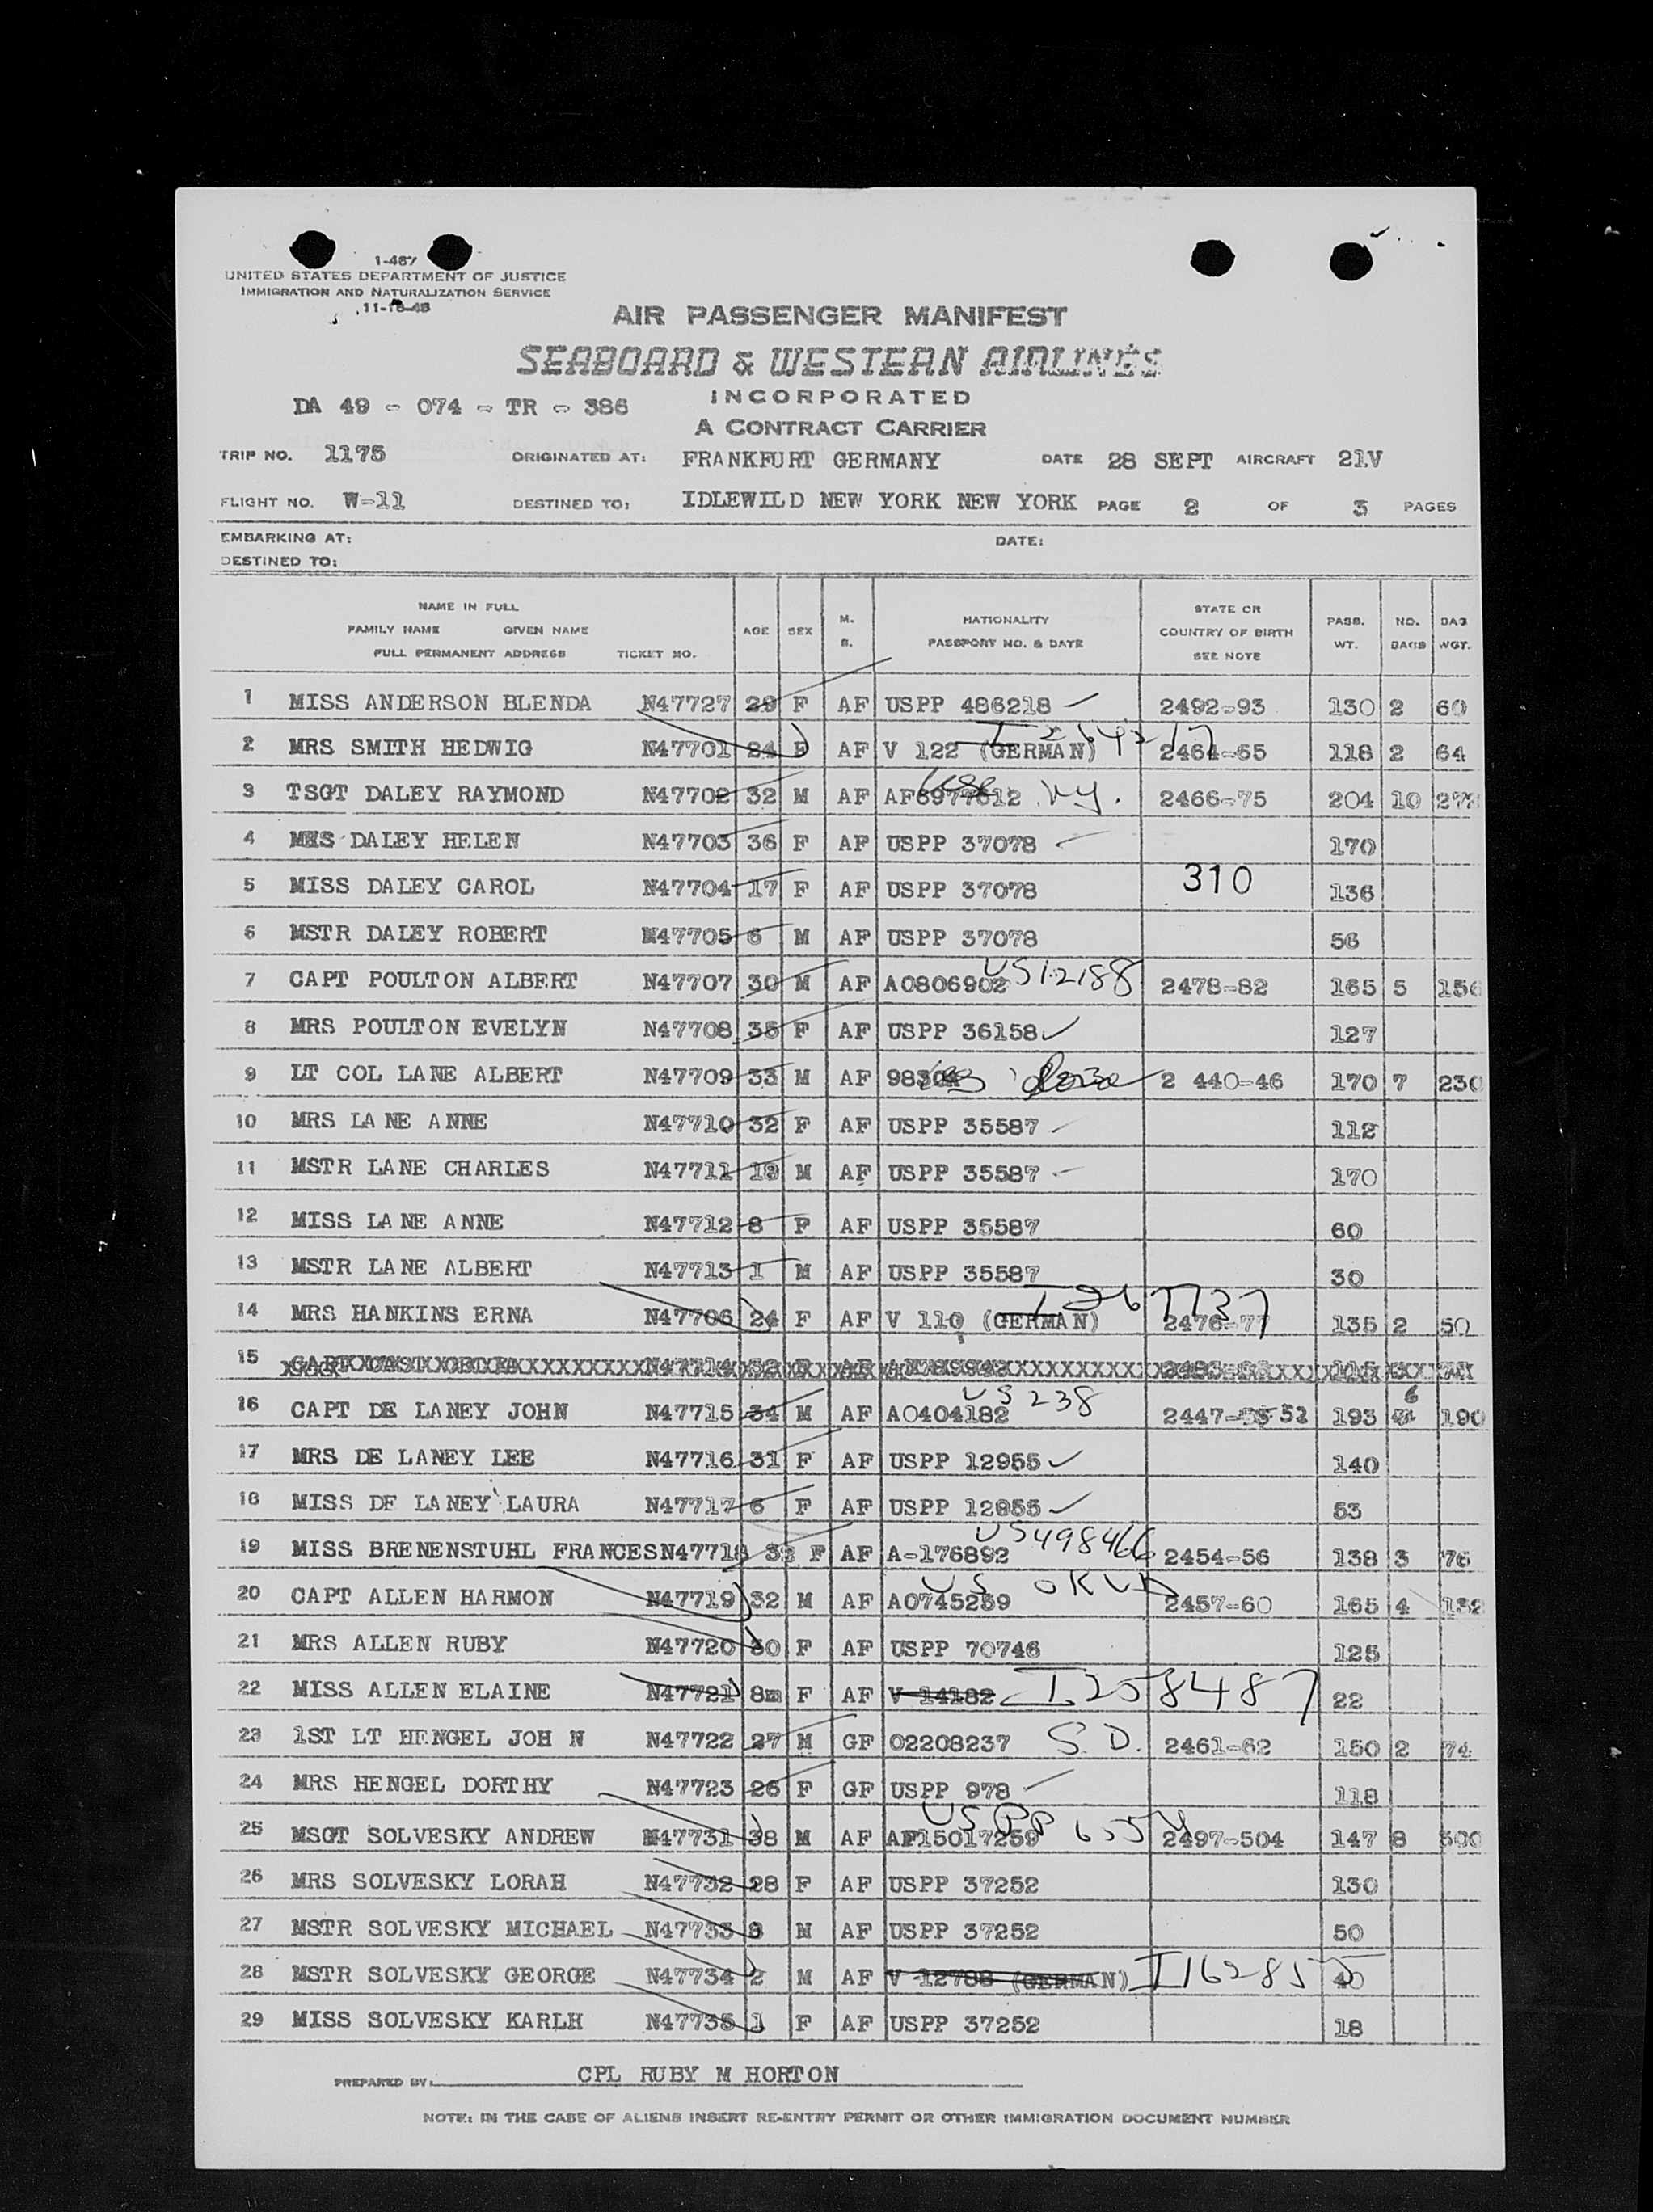 1-467
UNITED STATES DEPARTMENT OF JUSTICE
IMMIGRATION AND NATURALIZATION SERVICE
AIR PASSENGER MANIFEST
SEABOARD & WESTERN AIRLINES
INCORPORATED
DA 49 - 074 - TR - 386
A CONTRACT CARRIER
TRIP NO. 1175 ORIGINATED AT: FRANKFURT GERMANY DATE 28 SEPT AIRCRAFT 21V
FLIGHT NO. W-11 DESTINED TO: IDLEWILD NEW YORK NEW YORK PAGE 2 OF 3 PAGES
EMBARKING AT: DATE:
DESTINED TO:
NAME IN FULL
FAMILY NAME GIVEN NAME
FULL PERMANENT ADDRESS TICKET NO. AGE SEX M. S. NATIONALITY PASSPORT NO. & DATE STATE OR COUNTRY OF BIRTH SEE NOTE PASS. WT. NO. BAGS BAG WGT.
1 MISS ANDERSON BLENDA N47727 29 F AF USPP 486218 2492-93 130 2 60
2 MRS SMITH HEDWIG N47701 24 F AF V 122 (GERMAN) 2464-65 118 2 64
3 TSGT DALEY RAYMOND N47702 32 M AF AF6977612 N.Y. 2466-75 204 10 272
4 MRS DALEY HELEN N47703 36 F AF USPP 37078 170
5 MISS DALEY CAROL N47704 17 F AF USPP 37078 310 136
6 MSTR DALEY ROBERT N47705 6 M AF USPP 37078 56
7 CAPT POULTON ALBERT N47707 30 M AF AO806902 US12188 2478-82 165 5 156
8 MRS POULTON EVELYN N47708 35 F AF USPP 36158 127
9 LT COL LANE ALBERT N47709 33 M AF 2 440-46 170 7 230
10 MRS LANE ANNE N47710 32 F AF USPP 35587 112
11 MSTR LANE CHARLES N47711 AF USPP 35587 170
12 MISS LANE ANNE N47712 8 F AF USPP 35587 60
13 MSTR LANE ALBERT N47713 1 M AF USPP 35587 30
14 MRS HANKINS ERNA N47706 24 F AF V 110 (GERMAN) 2476-77 135 2 50
15 N47714
16 CAPT DE LANEY JOHN N47715 34 M AF AO404182 US 238 2447-52 193 6 190
17 MRS DE LANEY LEE N47716 31 F AF USPP 12955 140
18 MISS DE LANEY LAURA N47717 6 F AF USPP 12955 53
19 MISS BRENENSTUHL FRANCES N47718 F AF A-176892 US498466 2454-56 138 3 76
20 CAPT ALLEN HARMON N47719 32 M AF AO745259 US OKLA 2457-60 165 4 132
21 MRS ALLEN RUBY N47720 30 F AF USPP 70746 125
22 MISS ALLEN ELAINE N47721 8m F AF V 14182 I258487 22
23 1ST LT HENGEL JOHN N47722 27 M GF 02208237 S.D. 2461-62 150 2 74
24 MRS HENGEL DORTHY N47723 26 F GF USPP 978 118
25 MSGT SOLVESKY ANDREW N47731 38 M AF AF15017259 USPP 2497-504 147 8 300
26 MRS SOLVESKY LORAH N47732 28 F AF USPP 37252 130
27 MSTR SOLVESKY MICHAEL N47733 M AF USPP 37252 50
28 MSTR SOLVESKY GEORGE N47734 2 M AF V 12788 (GERMAN) 40
29 MISS SOLVESKY KARLH N47735 1 F AF USPP 37252 18
PREPARED BY: CPL RUBY M HORTON
NOTE: IN THE CASE OF ALIENS INSERT RE-ENTRY PERMIT OR OTHER IMMIGRATION DOCUMENT NUMBER